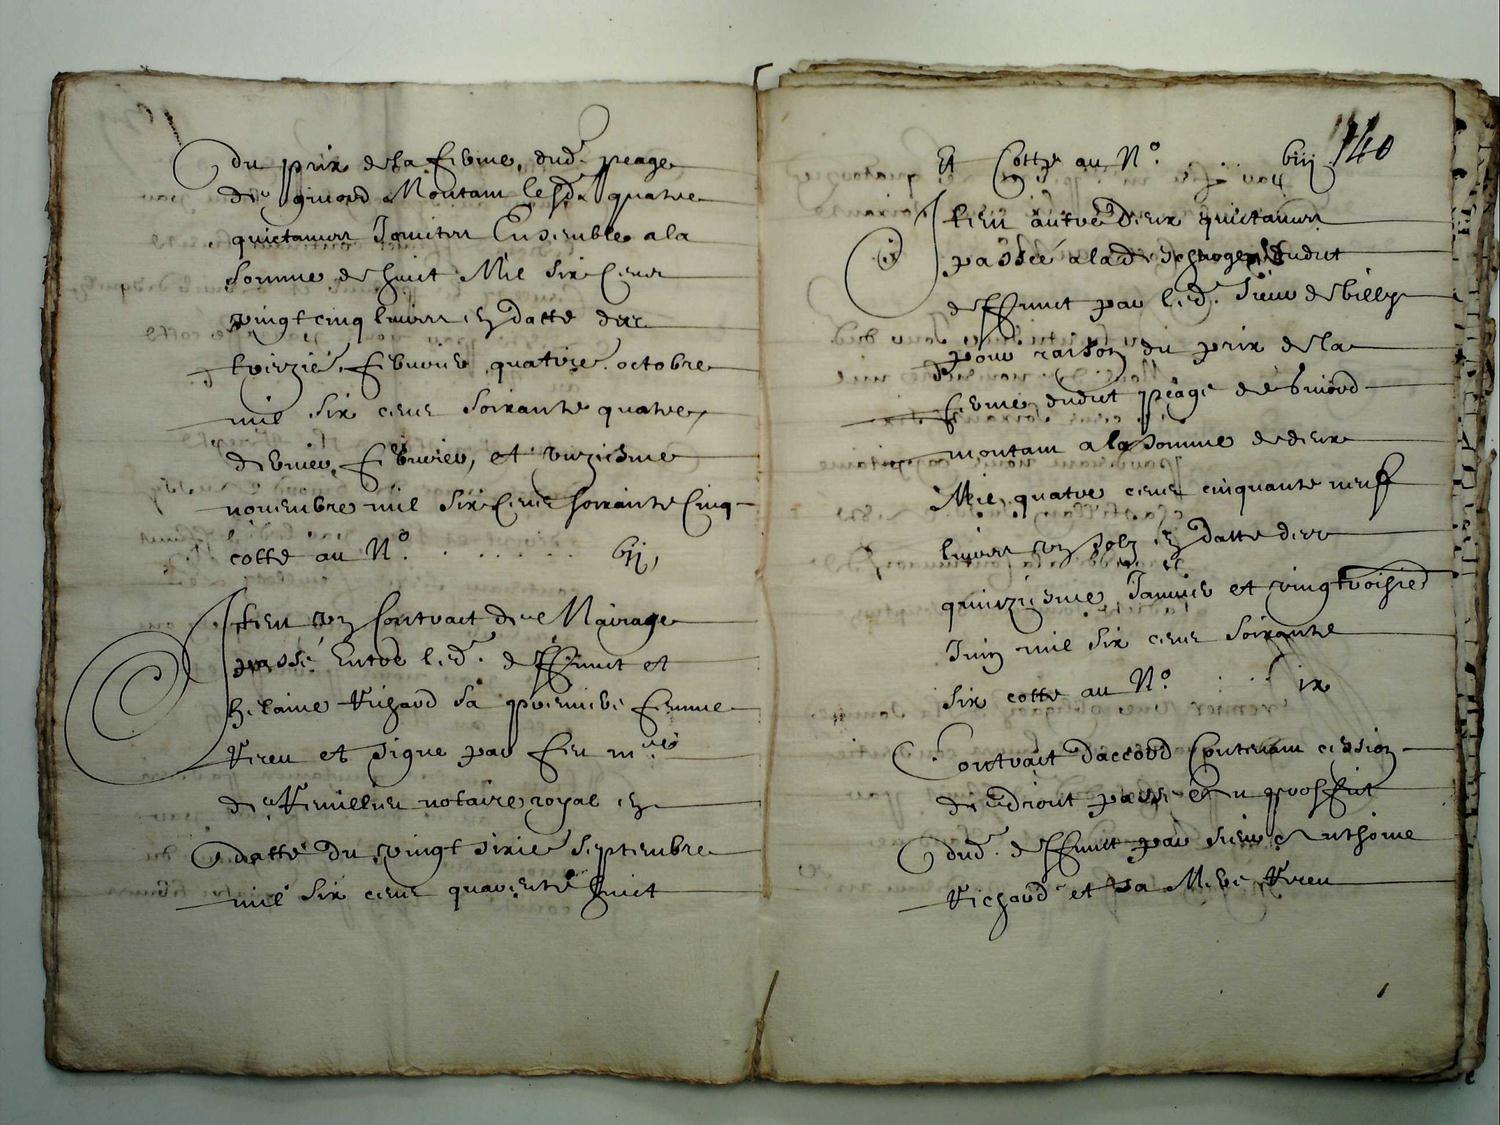 du prix de la ferme, dud. peage
de givord Montam lesd. quatre
quictances Jointes Ensemble a la
somme de huict Mil six Cens
vingt cinq livres en datte des
treizie. febvrier quatre. octobre
mil six cens soixante quatre
febvrier, et unziesme
novembre mil six Cens soixante Cinq
cotté au N.o . . . . . . . bij,
Item un Contrait de Mariage
passé Entre led. deffunct et
helaine Richard sa premiere femme
Receu et signe par feu
notaire royal en
datte du vingt sixie septembre
mil six cens quarente huict
140
Et Cotté au N.o . . . . biij
Item autre deux quictances
passée a la descharge dudict
deffunct par led. sieur de billy
pour raison du prix de la
ferme dudict peage de Givord
montam a la somme de deux
Mil quatre cens cinquante neuf
livres un solz en datte des
quinziesme Janvier et vingtroisie
Juin mil six cens soixante
six cotté au N.o . . . ix
Contrait daccord Contenam cession
de droict passé au proffict
dud. deffunct par sieur Anthoine
Richard et sa Mere Receu